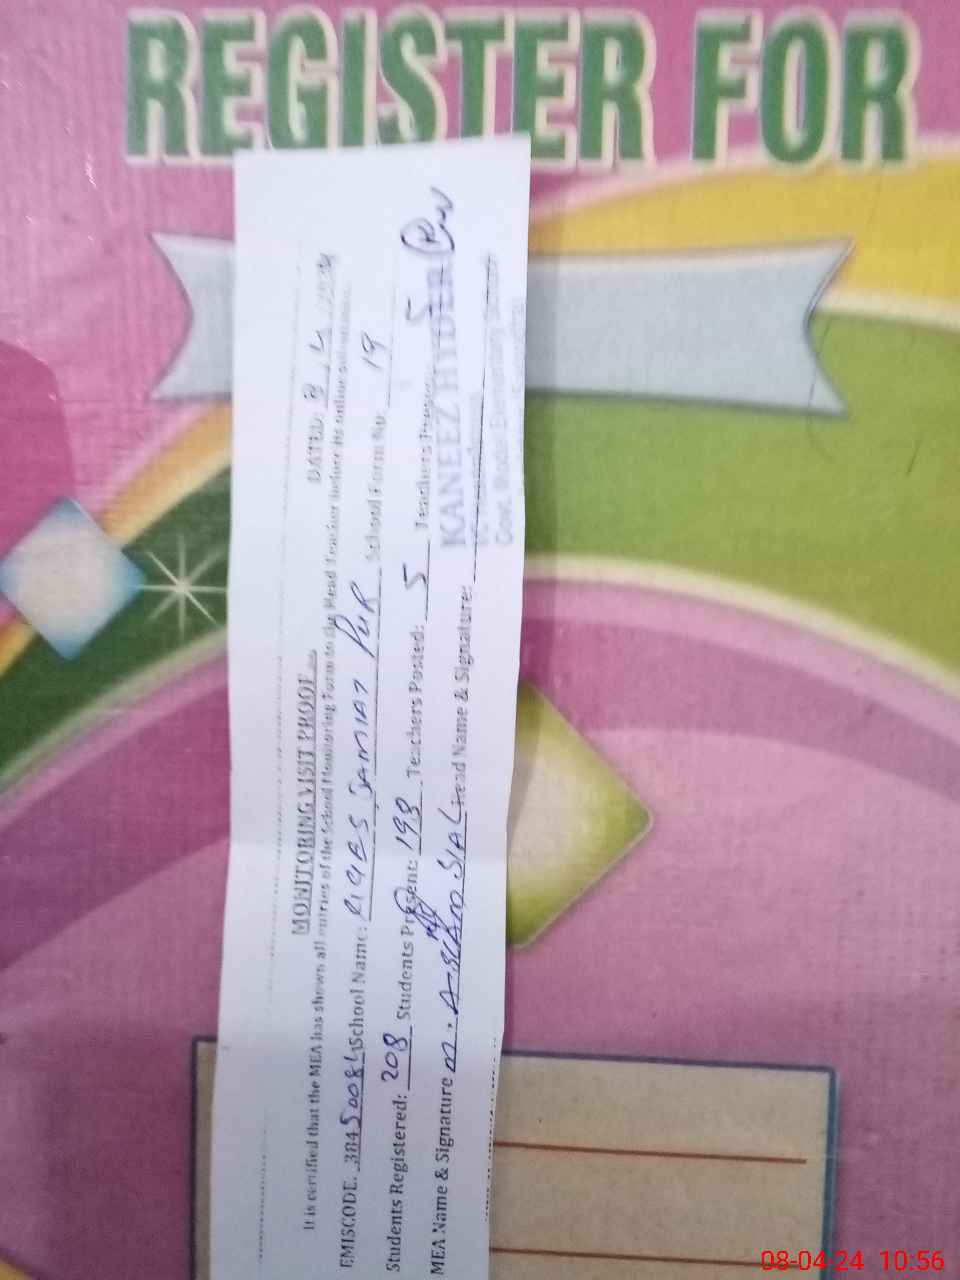 REGISTER FOR
DATED: 8 / 4 /2024
MONITORING VISIT PROOF
It is certified that the MEA has shown all entries of the School Monitoring Form to the Head Teacher before its online submission.
EMISCODE. School Name: School Form No: 19
Students Registered: 208 Students Present: 198 Teachers Posted: 5 Teachers Present: 5
MEA Name & Signature Head Name & Signature:
KANEEZ HYDER
Govt. Model Elementary School
08-04-24 10:56